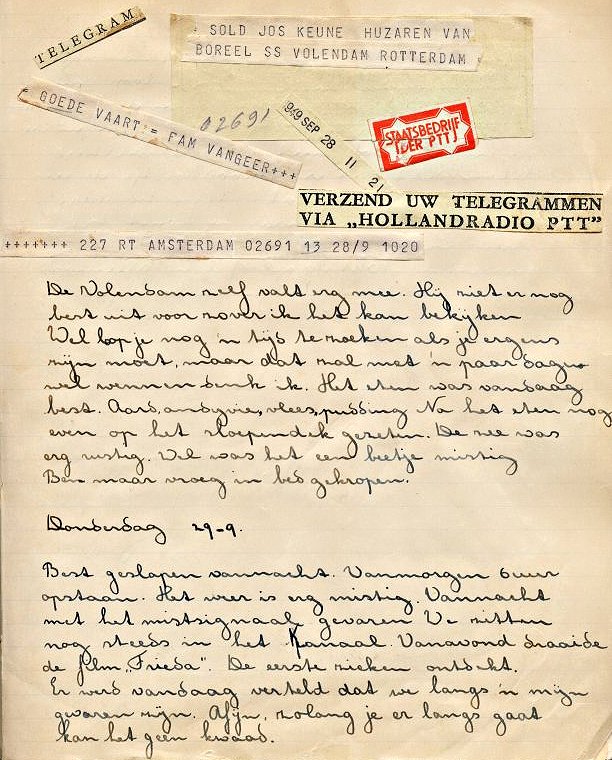 TELEGRAM
SOLD JOS KEUNE HUZAREN VAN
BOREEL SS VOLENDAM ROTTERDAM
= GOEDE VAART = FAM VANGEER+++
02691
949 SEP 28 11 21
STAATSBEDRIJF
DER PTT
VERZEND UW TELEGRAMMEN
VIA „HOLLANDRADIO PTT”
+++++++ 227 RT AMSTERDAM 02691 13 28/9 1020
De Volendam zelf valt erg mee. Hij ziet er nog
best uit voor zover ik het kan bekijken
Wel loop je nog 'n tijd te zoeken als je ergens
zijn moet, maar dat zal met 'n paar dagen
wel wennen denk ik. Het eten was vandaag
best. Aard, andijvie, vlees, pudding Na het eten nog
even op het sloependek gezeten. De zee was
erg rustig. Wel was het een beetje mistig
Ben maar vroeg in bed gekropen.
Donderdag 29-9.
Best geslapen vannacht. Vanmorgen 6 uur
opstaan. Het weer is erg mistig. Vannacht
met het mistsignaal gevaren We zitten
nog steeds in het Kanaal. Vanavond draaide
de film „Frieda”. De eerste zieken ontdekt.
Er werd vandaag verteld dat we langs 'n mijn
gevaren zijn. Afijn, zolang je er langs gaat
kan het geen kwaad.